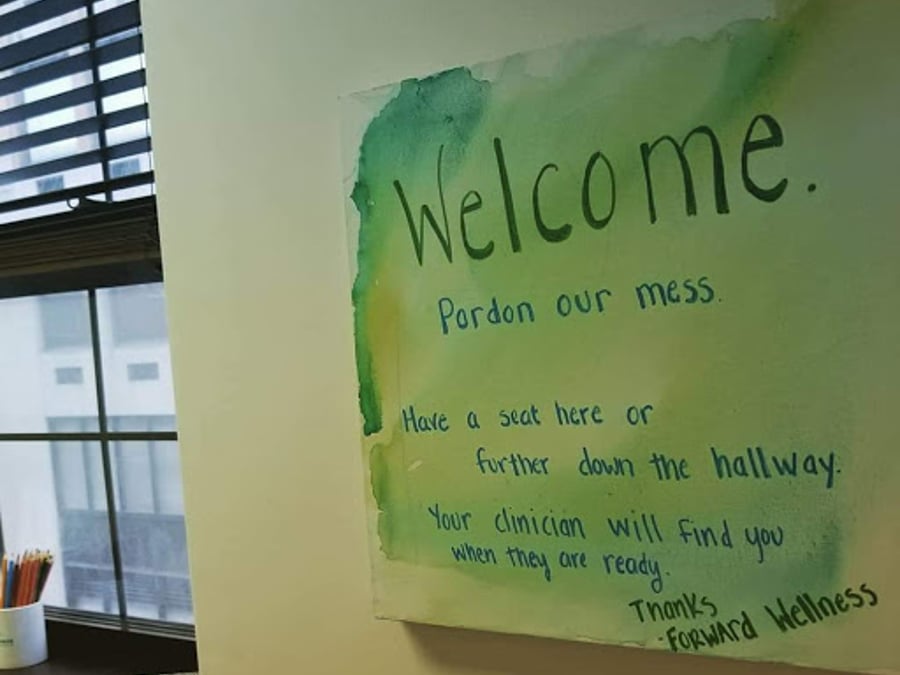 Welcome.
Pardon our mess.
Have a seat here or
further down the hallway.
Your clinician will find you
when they are ready.
Thanks
-FORWARd Wellness